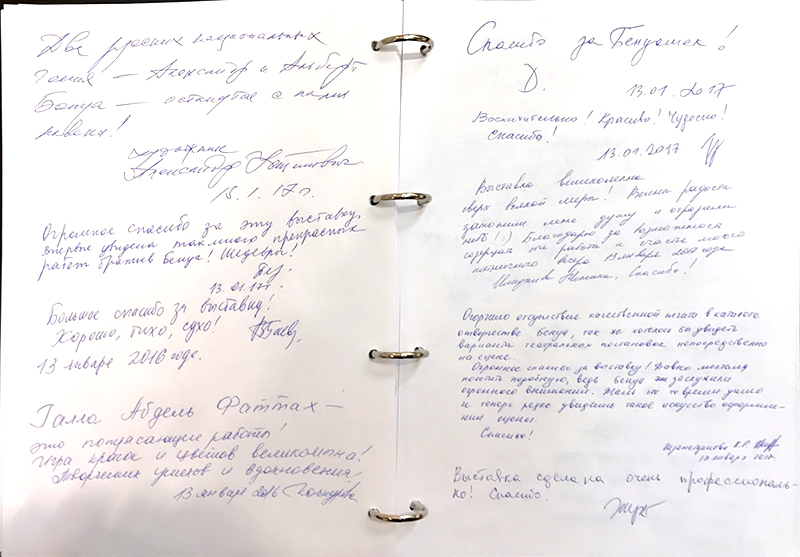 Два русских национальных
гения — Александр и Альберт
Бенуа —
художник
Александр
13.1.17г.
Огромное спасибо за эту выставку,
впервые увидела так много прекрасных
работ братьев Бенуа! Шедевры!
13.01.17г.
Большое спасибо за выставку!
Хорошо, тихо, сухо!
13 января 2016 года.
Галла Абдель Фаттах —
это потрясающие работы!
Игра красок и цветов великолепна!
Творческих успехов и вдохновения!
13 января 2016
Спасибо за Бенуашек!
D. 13.01.2017
Восхитительно! Красиво! Чудесно!
Спасибо!
13.01.2017
Выставка великолепна
сверх всякой меры! Волны радости
заполнили мою душу и озарили
небо :) Благодарю за возможность
созерцать эти работы и счастье моего
пятничного вечера 13 января 2017 года
Спасибо!
Огорчило отсутствие качественной печати в каталоге
о творчестве Бенуа, так же хотелось бы увидеть
варианты театральных постановок непосредственно
на сцене.
Огромное спасибо за выставку! Давно мечтала
посетить подобную, ведь Бенуа заслужили
огромного внимания. Жаль что то время ушло
и теперь редко увидишь такое искусство оформле-
ния сцены.
Спасибо!
13 января 2017
Выставка сделана очень профессиональ-
но! Спасибо.